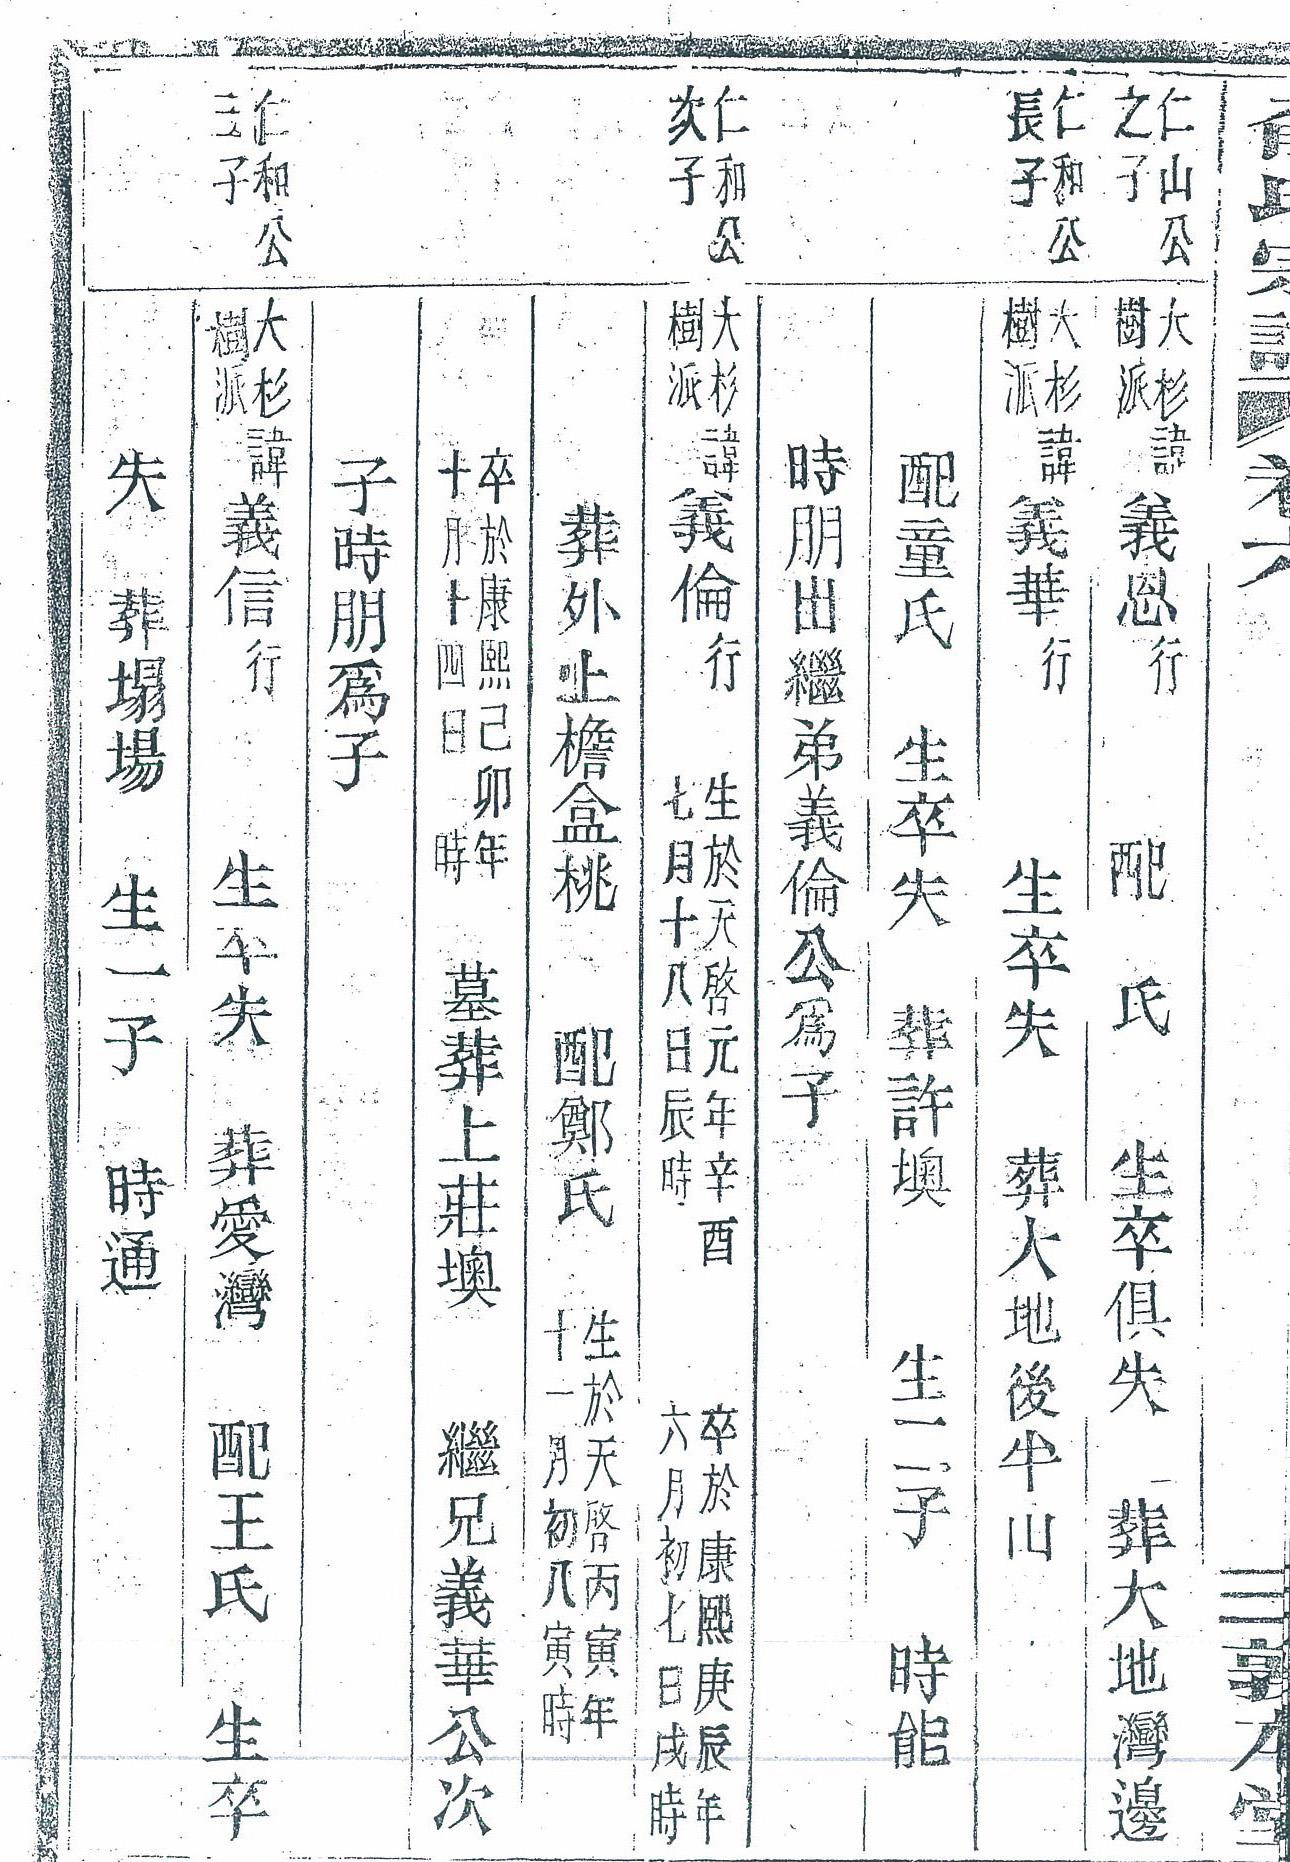 氏宗譜 卷六 三 敦本堂
仁山公之子
大杉樹派 諱義恩行 配 氏 生卒俱失 葬大地灣邊
仁和公長子
大杉樹派 諱義華行 生卒失 葬大地後半山
配童氏 生卒失 葬許墺 生二子 時能
時朋出繼弟義倫公爲子
仁和公次子
大杉樹派 諱義倫行 生於天啓元年辛酉七月十八日辰時 卒於康熙庚辰年六月初七日戌時
葬外止檐盒桃 配鄭氏 生於天啓丙寅年十一月初八寅時
卒於康熙己卯年十月十四日 時 墓葬上莊墺 繼兄義華公次
子時朋爲子
仁和公三子
大杉樹派 諱義信行 生卒失 葬愛灣 配王氏 生卒
失 葬塌場 生一子 時通